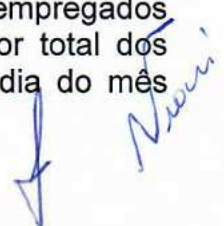 empregados
or total dos
dia do mês